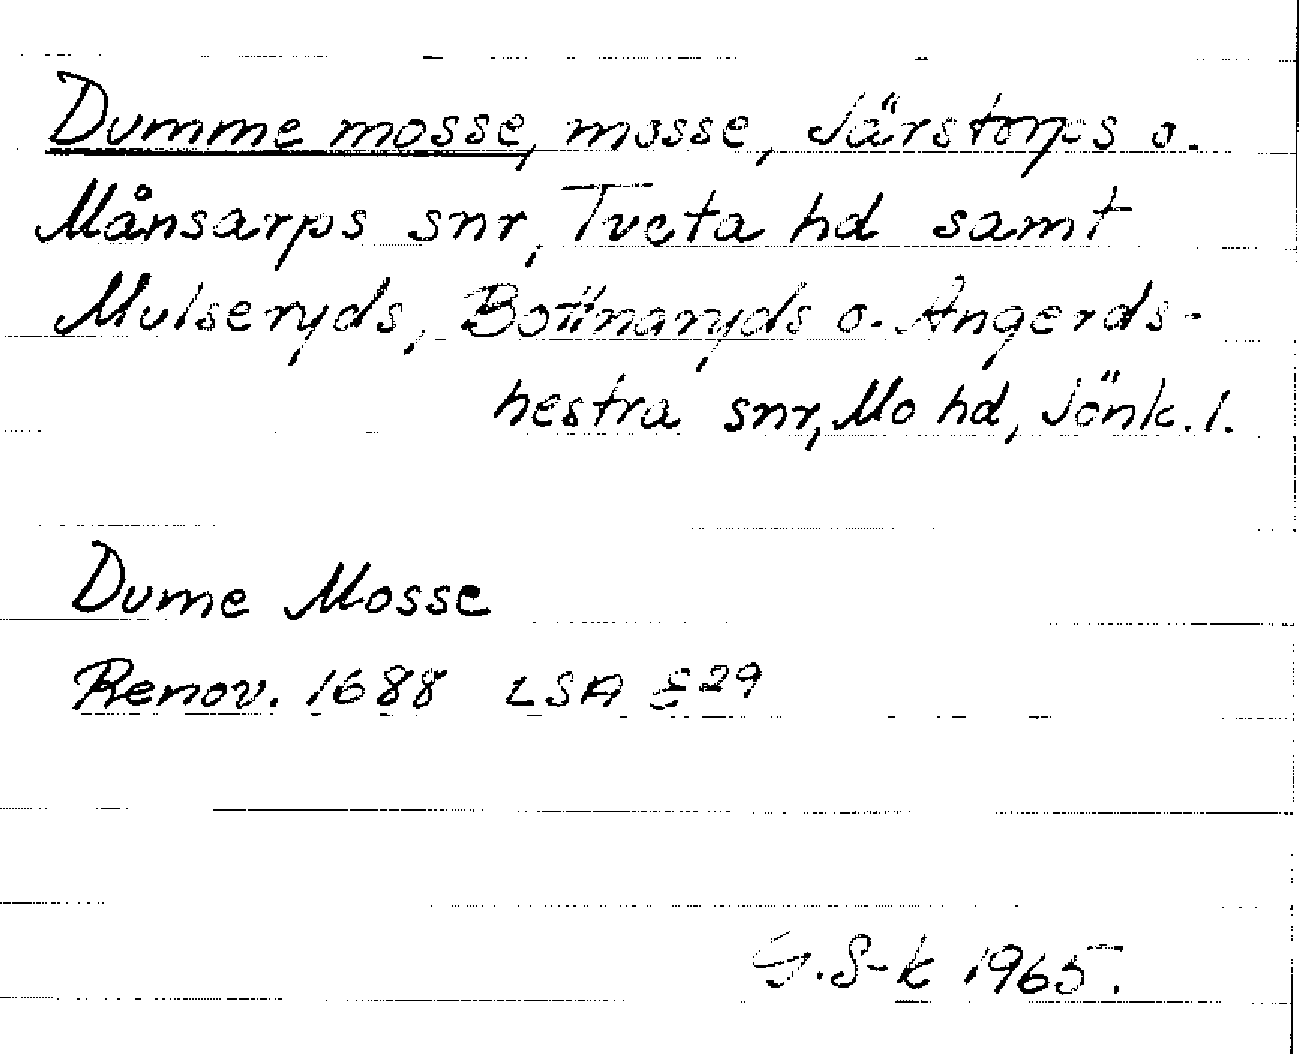 Dumme mosse, mosse, Järstorps o.
Månsarps snr, Tveta hd samt
Mulseryds, Bottnaryds o. Angerds-
hestra snr, Mo hd, Jönk. l.
Dume Mosse
Renov. 1688 LSA E29
G. S-k 1965.